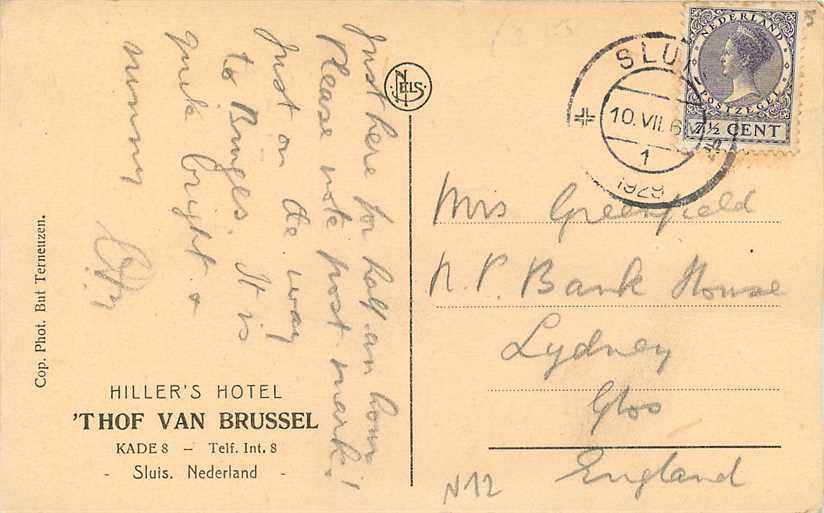 Just here for half an hour
Please note post mark!
Just on the way
to Bruges. It is
quite bright &
sunny
NELS
Cop. Phot. But Terneuzen.
HILLER'S HOTEL
'T HOF VAN BRUSSEL
KADE 8 – Telf. Int. 8
- Sluis. Nederland -
NEDERLAND
POSTZEGEL
7½ CENT
SLUIS
10. VII. 6
1
1929
Mrs Greenfield
N. P. Bank House
Lydney
Glos
England
N12